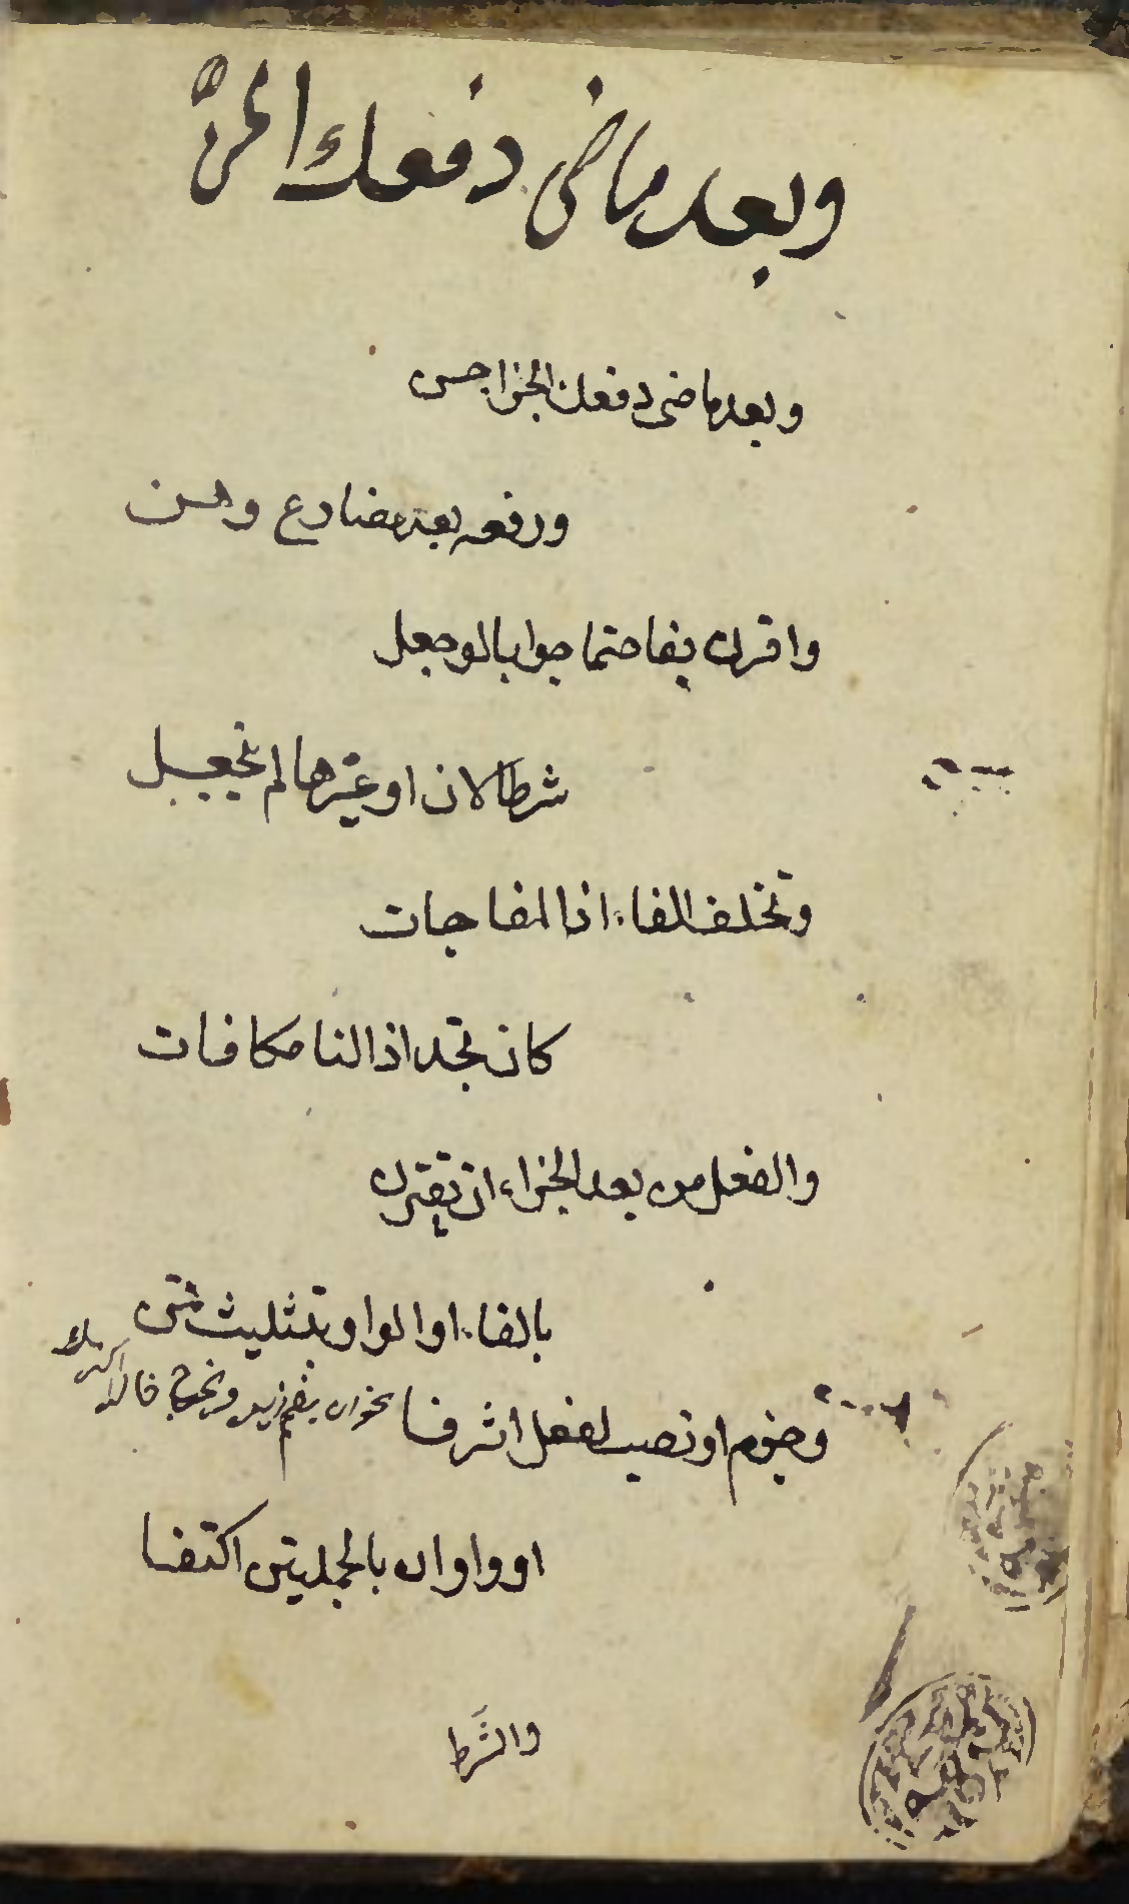 وبعد ماض دفعك الجز
وبعد ماضى دفعك الجزا حسن
ورفعه بعد مضارع وهن
واقرن بفا حتما جوابا لو جعل
شرطا لان او غيرها لم ينجعل
وتخلف الفاء اذا المفاجات
كان تجد اذا لنا مكافات
والفعل من بعد الجزاء ان يقترن
بالفاء او الواو بتثليث قمن
وجزم او نصب لفعل اثر فا
او واو ان بالجملتين اكتنفا
والشَرط